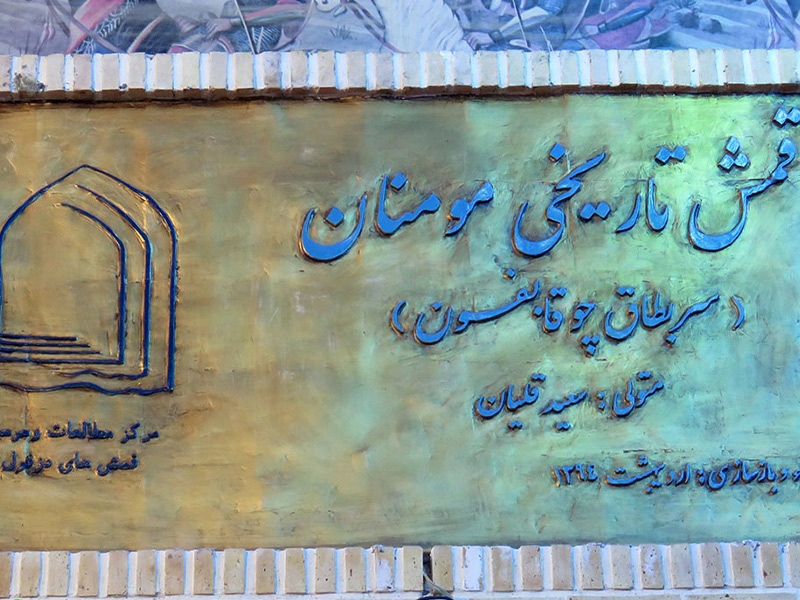 قمش تاریخی مومنان
(سربطاق چوقابفسون)
متولی: سعید قلیان
و بازسازی: اردیبهشت ۱۳۹٤
مرکز مطالعات و
قمش های دزفول